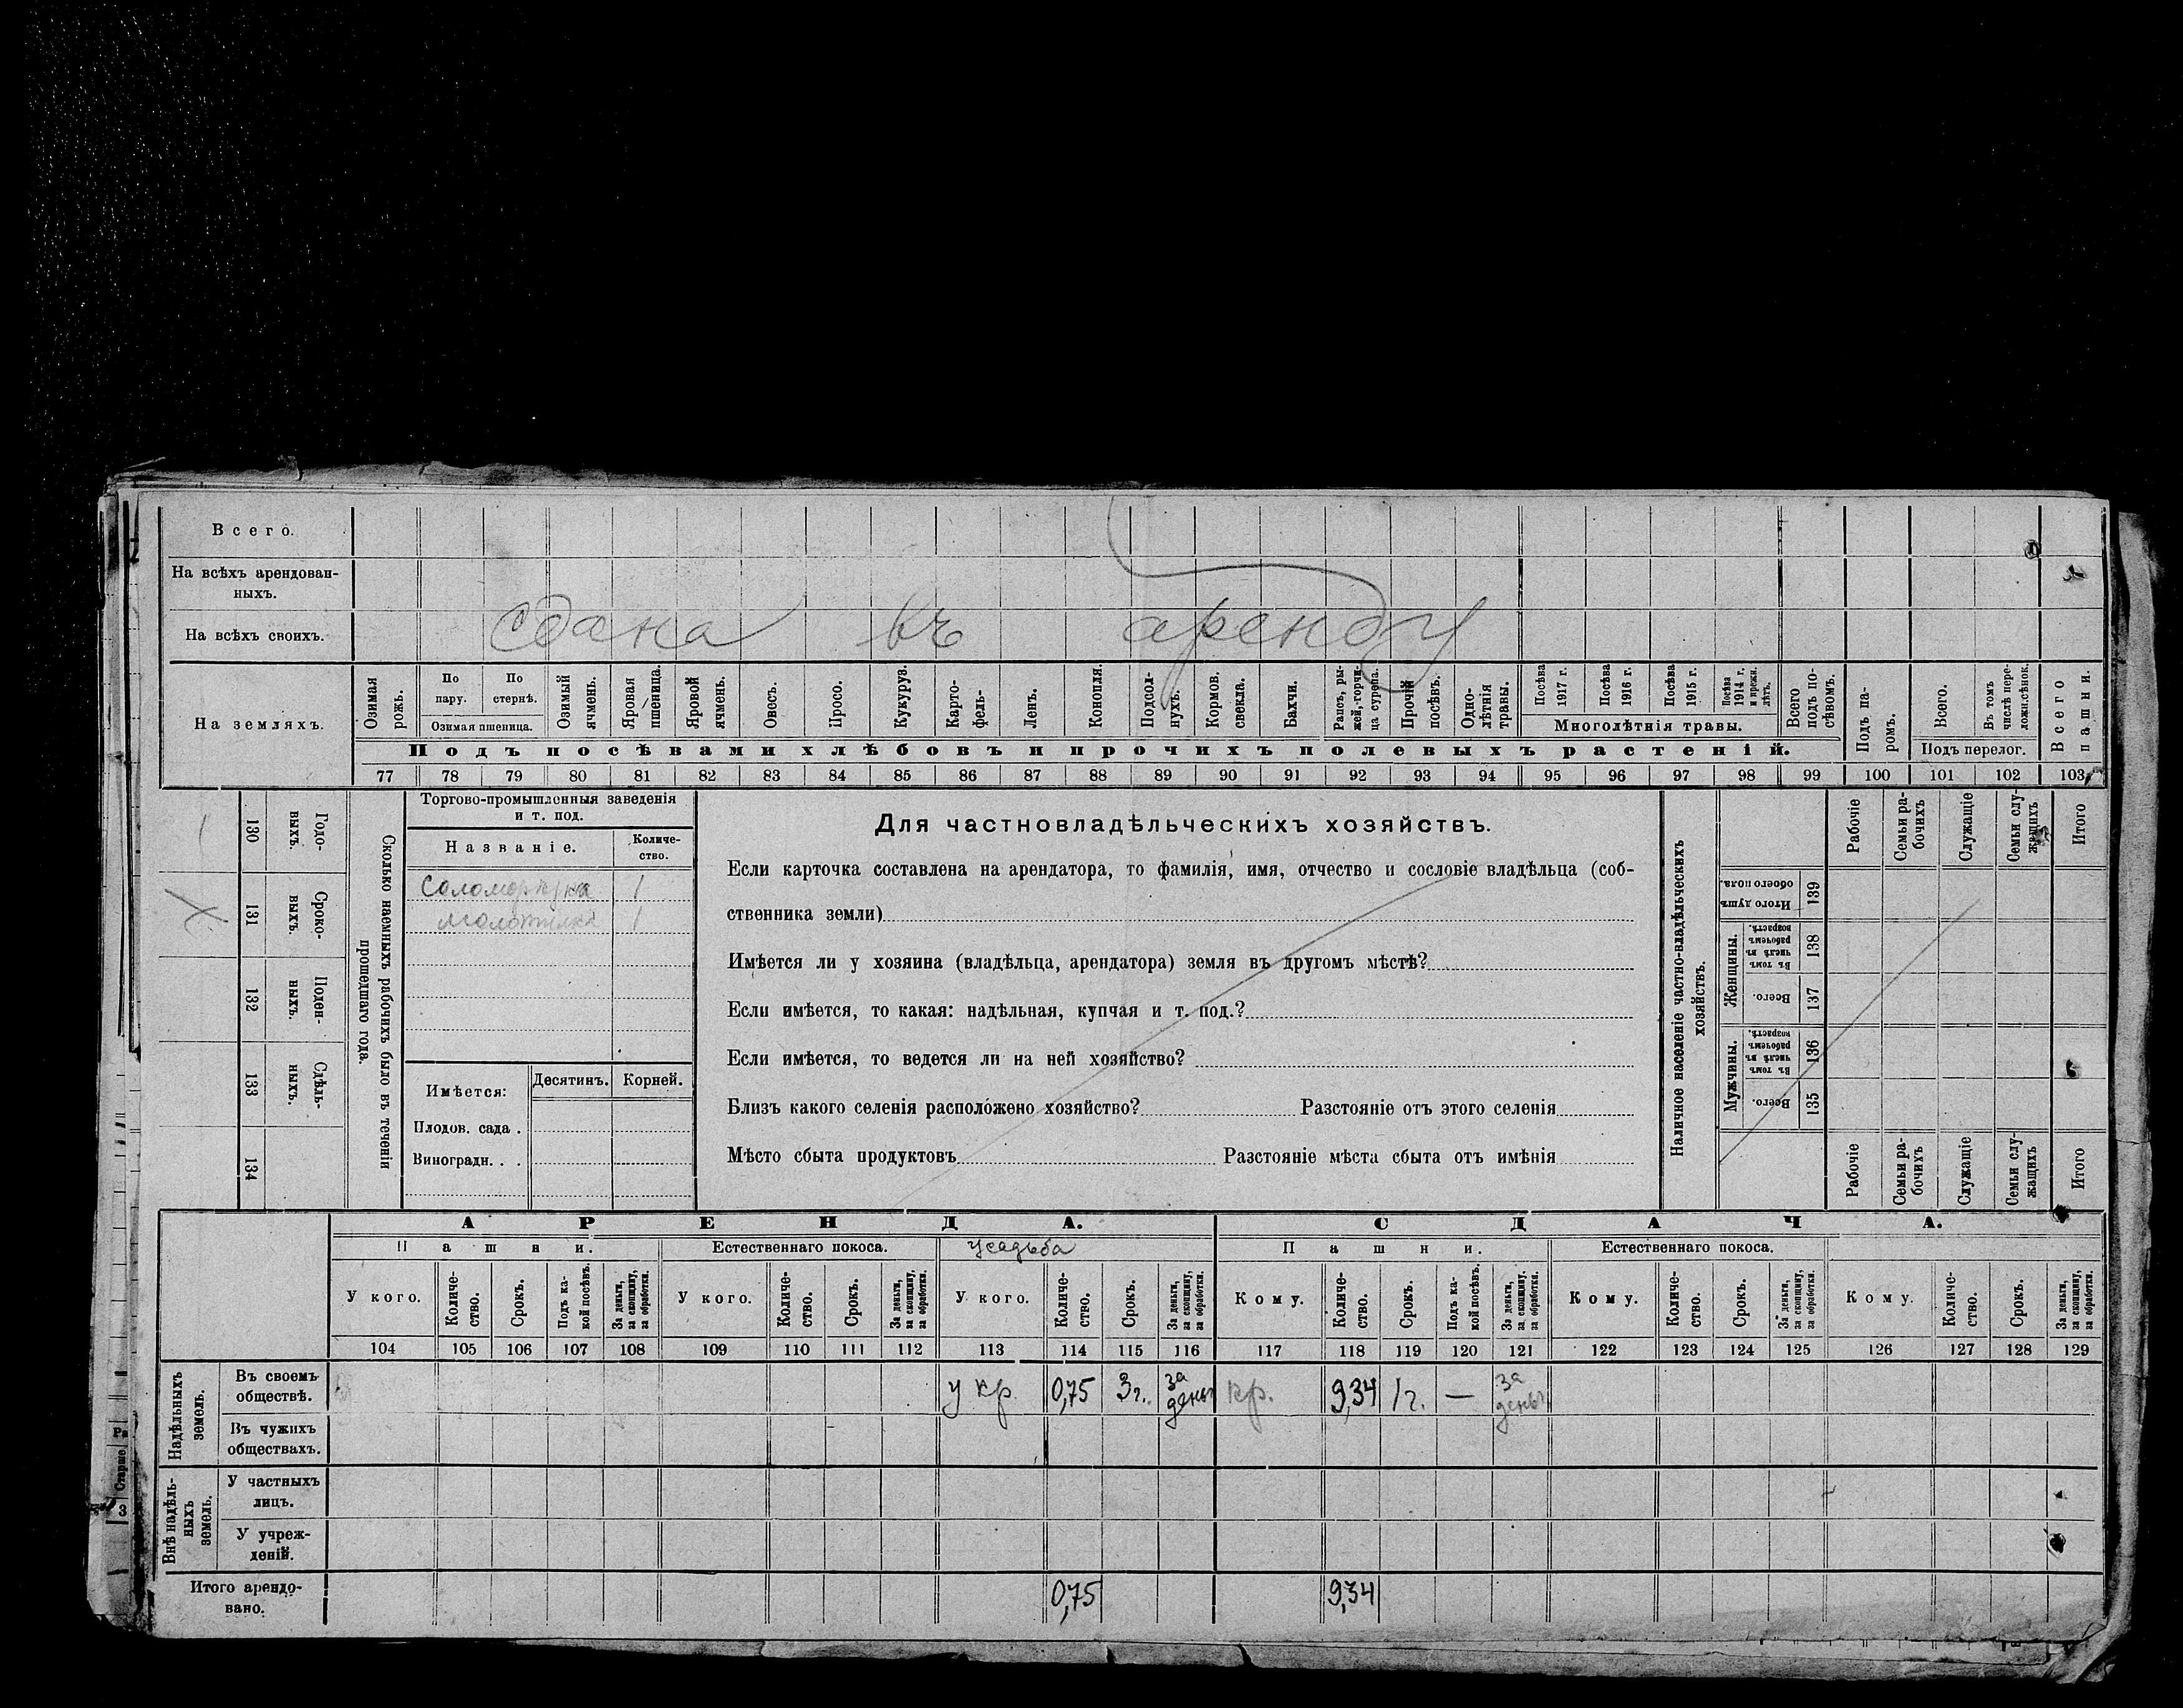 Всего.
На всѣхъ арендован-
ныхъ.
На всѣхъ своихъ.
сдана въ аренду
На земляхъ.
Озимая рожь.
По пару.
По стернѣ.
Озимая пшеница.
Озимый ячмень.
Яровая пшеница.
Яровой ячмень.
Овесъ.
Просо.
Кукуруз.
Карто-
фель.
Ленъ.
Конопля.
Подсол-
нухъ.
Кормов. свекла.
Бахчи.
Рапсъ, ры-
жей, горчи-
ца сурепа.
Прочій посѣвъ.
Одно-
лѣтнія травы.
Посѣва 1917 г.
Посѣва 1916 г.
Посѣва 1915 г.
Посѣва 1914 г. и прежн. лѣтъ.
Многолѣтнія травы.
Всего подъ по-
сѣвомъ.
Подъ па-
ромъ.
Всего.
Въ томъ числѣ пере-
ложн. сѣнок.
Подъ перелог.
Всего пашни.
Подъ посѣвами хлѣбовъ и прочихъ полевыхъ растеній.
77 78 79 80 81 82 83 84 85 86 87 88 89 90 91 92 93 94 95 96 97 98 99 100 101 102 103
130 Годо-
выхъ.
131 Сроко-
выхъ.
132 Поден-
ныхъ.
133 Сдѣль-
ныхъ.
134
Сколько наемныхъ рабочихъ было въ теченіи
прошедшаго года.
Торгово-промышленныя заведенія
и т. под.
Названіе.
Количе-
ство.
Соломорѣзка 1
молотилка 1
Имѣется:
Десятинъ.
Корней.
Плодов. сада .
Виноградн. . .
Для частновладѣльческихъ хозяйствъ.
Если карточка составлена на арендатора, то фамилія, имя, отчество и сословіе владѣльца (соб-
ственника земли)
Имѣется ли у хозяина (владѣльца, арендатора) земля въ другомъ мѣстѣ?
Если имѣется, то какая: надѣльная, купчая и т. под.?
Если имѣется, то ведется ли на ней хозяйство?
Близъ какого селенія расположено хозяйство? Разстояніе отъ этого селенія
Мѣсто сбыта продуктовъ Разстояніе мѣста сбыта отъ имѣнія
Наличное населеніе частно-владѣльческихъ
хозяйствъ.
Рабочіе
Семьи ра-
бочихъ
Служащіе
Семьи слу-
жащихъ
Итого
Итого душъ обоего пола. 139
Женщины.
Въ томъ числѣ въ рабочемъ возрастѣ. 138
Всего. 137
Мужчины.
Въ томъ числѣ въ рабочемъ возрастѣ. 136
Всего. 135
Рабочіе
Семьи ра-
бочихъ
Служащіе
Семьи слу-
жащихъ
Итого
АРЕНДА. СДАЧА.
Пашни. Естественнаго покоса. усадьба Пашни. Естественнаго покоса.
У кого. Количе-
ство. Срокъ. Подъ ка-
кой посѣвъ. За деньги, за скопщину, за обработки.
У кого. Количе-
ство. Срокъ. За деньги, за скопщину, за обработки.
У кого. Количе-
ство. Срокъ. За деньги, за скопщину, за обработки.
Кому. Количе-
ство. Срокъ. Подъ ка-
кой посѣвъ. За деньги, за скопщину, за обработки.
Кому. Количе-
ство. Срокъ. За деньги, за скопщину, за обработки.
Кому. Количе-
ство. Срокъ. За деньги, за скопщину, за обработки.
104 105 106 107 108 109 110 111 112 113 114 115 116 117 118 119 120 121 122 123 124 125 126 127 128 129
Надѣльныхъ
земель.
Въ своемъ
обществѣ.
у кр. 0,75 3 г. за деньг кр. 9,34 1 г. — за деньг.
Въ чужихъ
обществахъ.
Внѣ надѣль-
ныхъ
земель.
У частныхъ
лицъ.
У учреж-
деній.
Итого арендо-
вано.
0,75 9,34
Старше
3